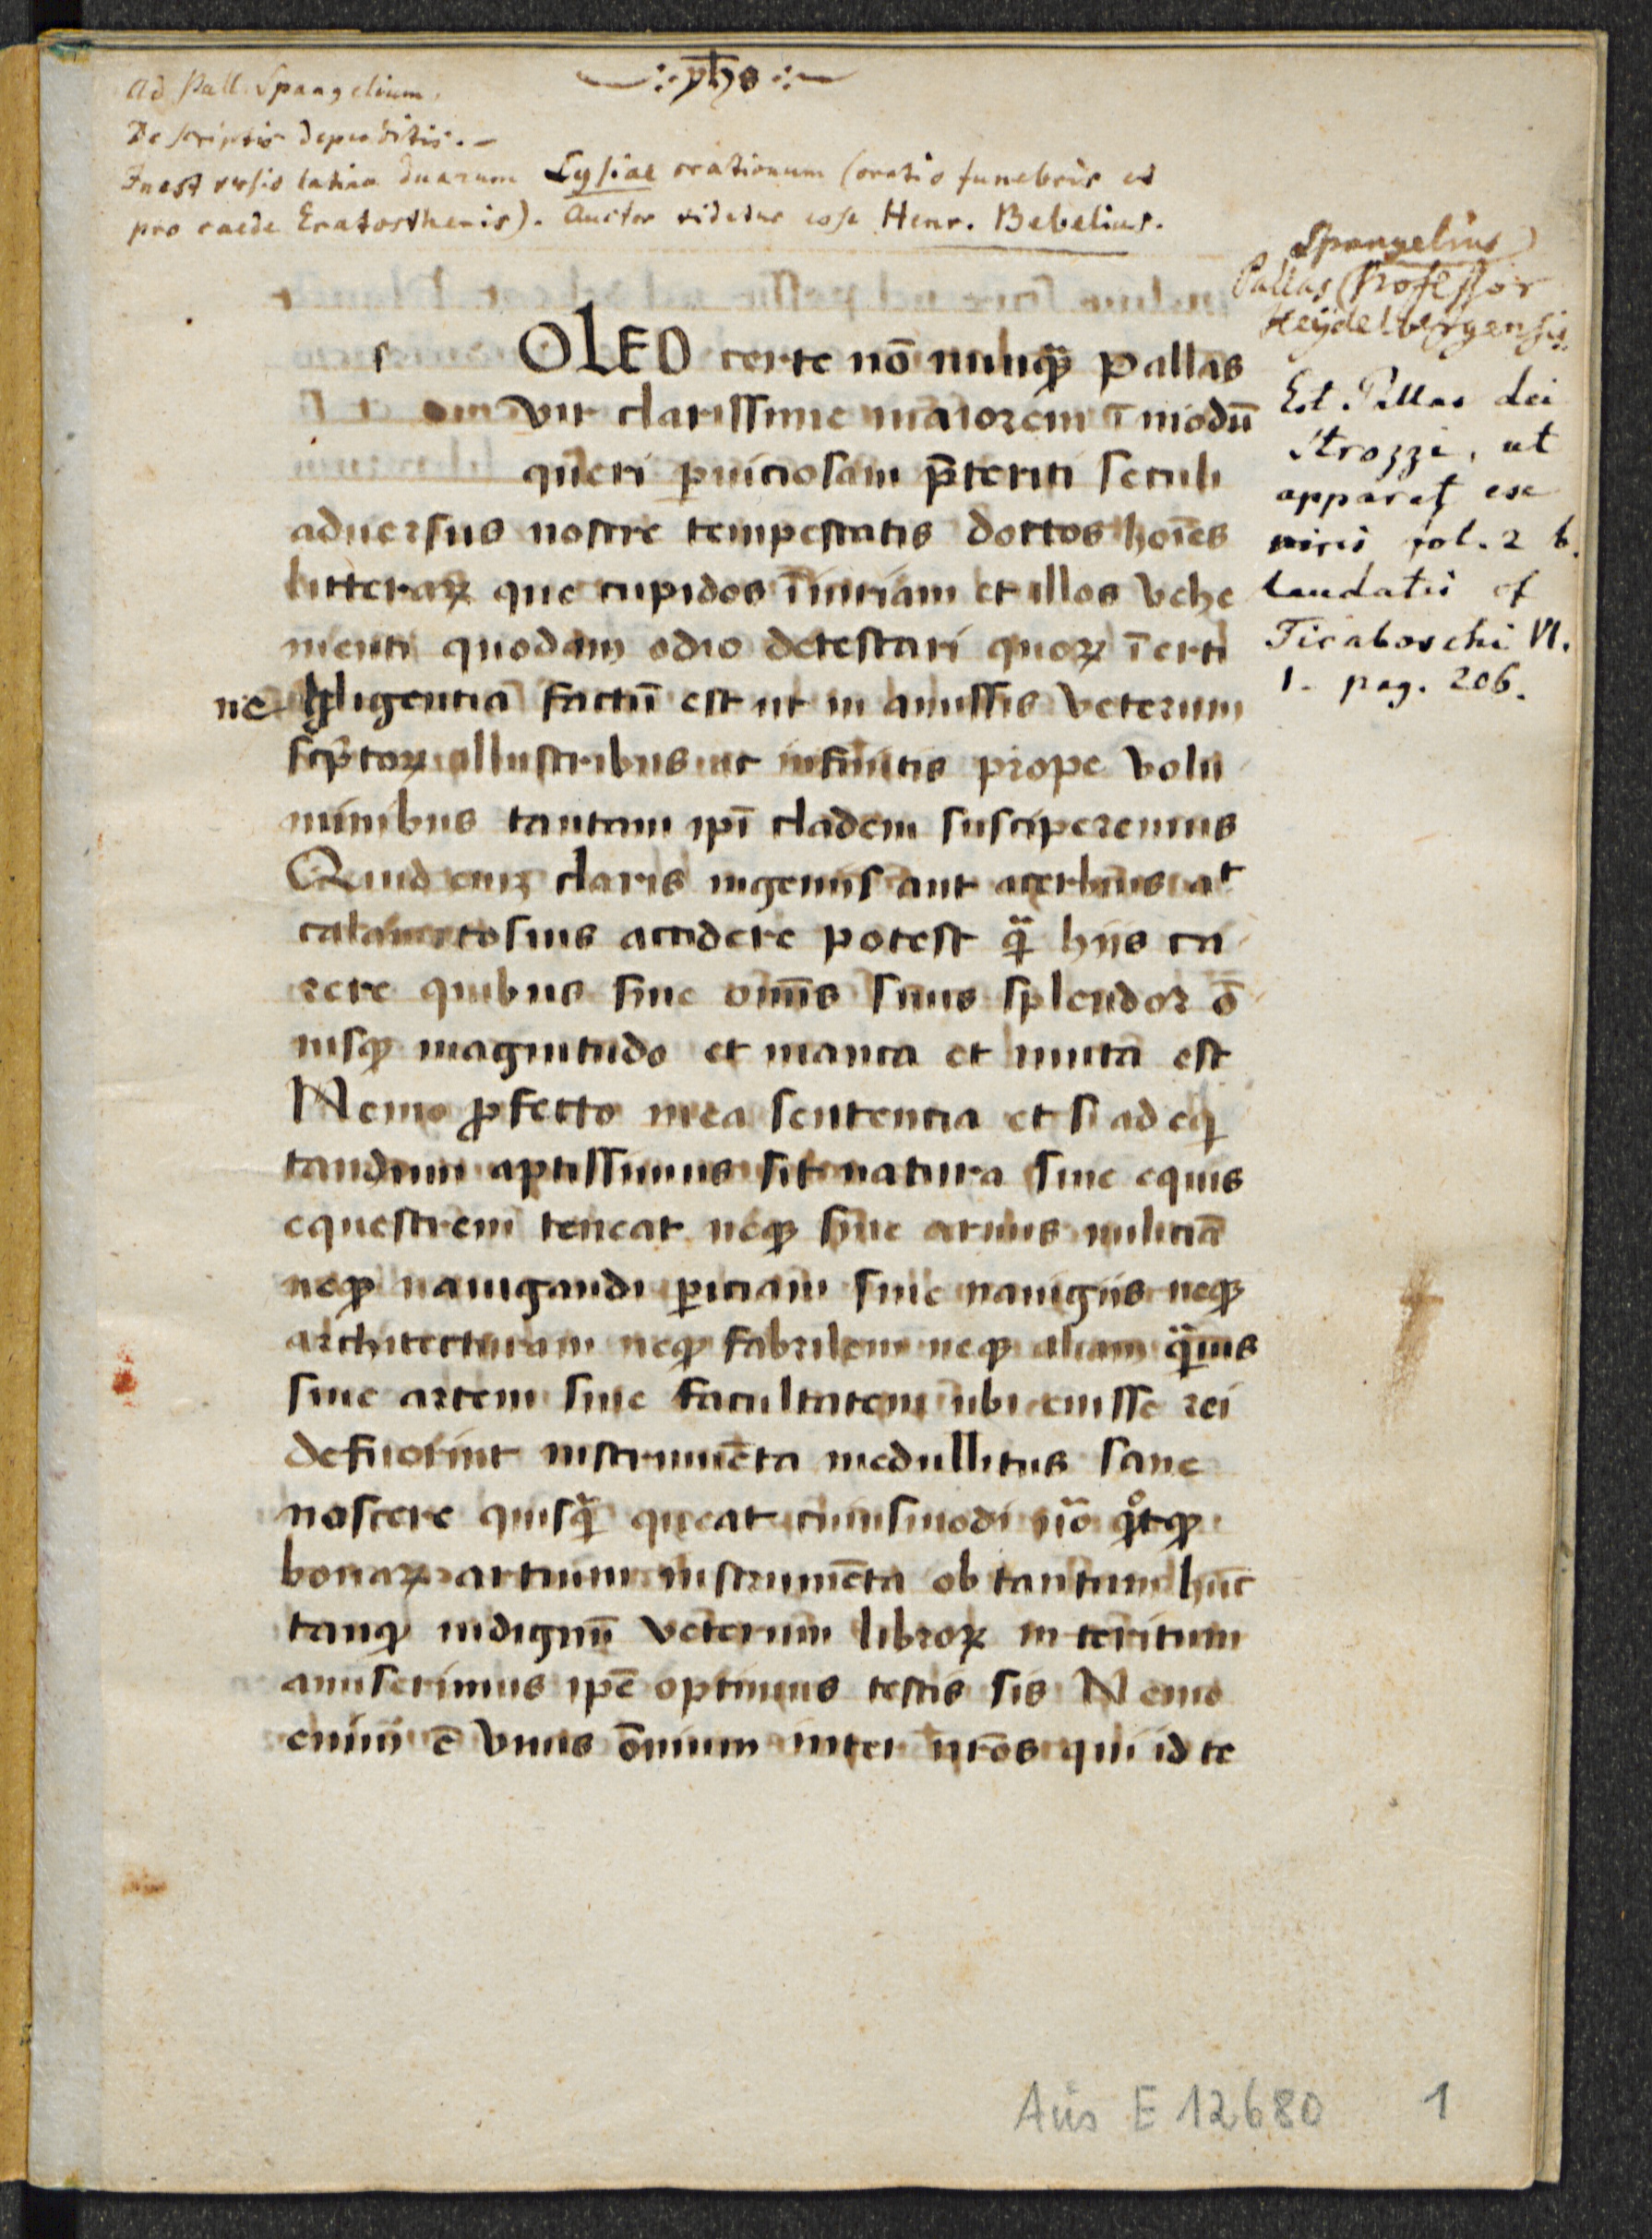 yhs
Ad Pall. Spangelium.
De scriptis deperditis. –
Inest versio latina duarum Lysiae orationum (oratio funebris et
pro caede Eratosthenis). Auctor videtur esse Henr. Bebelius.
Spangelius
Pallas Professor
Heydelbergensis.
Est Pallas dei
Strozzi, ut
apparet ex
viris fol. 2 b.
laudatis cf
Tiraboschi VI.
1. pag. 206.
s OLEO certe nō nunq̄ pallas
vir clarissime maiorem ī modū
queri ꝑniciosam p̄teriti seculi
aduersus nostre tempestatis doctos hoīes
litteraꝝ que cupidos iniuriam et illos vehe
menti quodam odio detestari quoꝝ īerti
ne gligentia factū est ut in amissis veterum
sc̄ptoꝝ illustribus ac infinitis prope volu
minibus tantam ipī cladem susciperemus
Quid eniꝫ claris ingeniis aut acerbius at
calamitosius accidere potest q̄ hijs ca
rere quibus sine omīs suus splendor ō
nisqꝫ magnitudo et manca et muta est
Nemo ꝓfecto mea sentencia et si ad eq̄
tandum aptissimus sit natura sine equis
equestrem teneat neqꝫ sine armis miliciā
neqꝫ nauigandi ꝑiciam sine nauigiis neqꝫ
architecturam neqꝫ fabrilem neqꝫ aliam q̄uis
siue artem siue facultatem ubi eiusse rei
defuerint instrumēta medullitus sane
noscere quisq̄ queat cuiusmodi nō q̊tqꝫ
bonaꝝ artium instrumēta ob tantum hūc
tanqꝫ indignū veterum libroꝝ interitum
amiserimus ipē optimus testis sis Nemo
enim ē vnus ōnium inter nr̄os qui id te
Aus E 12680 1